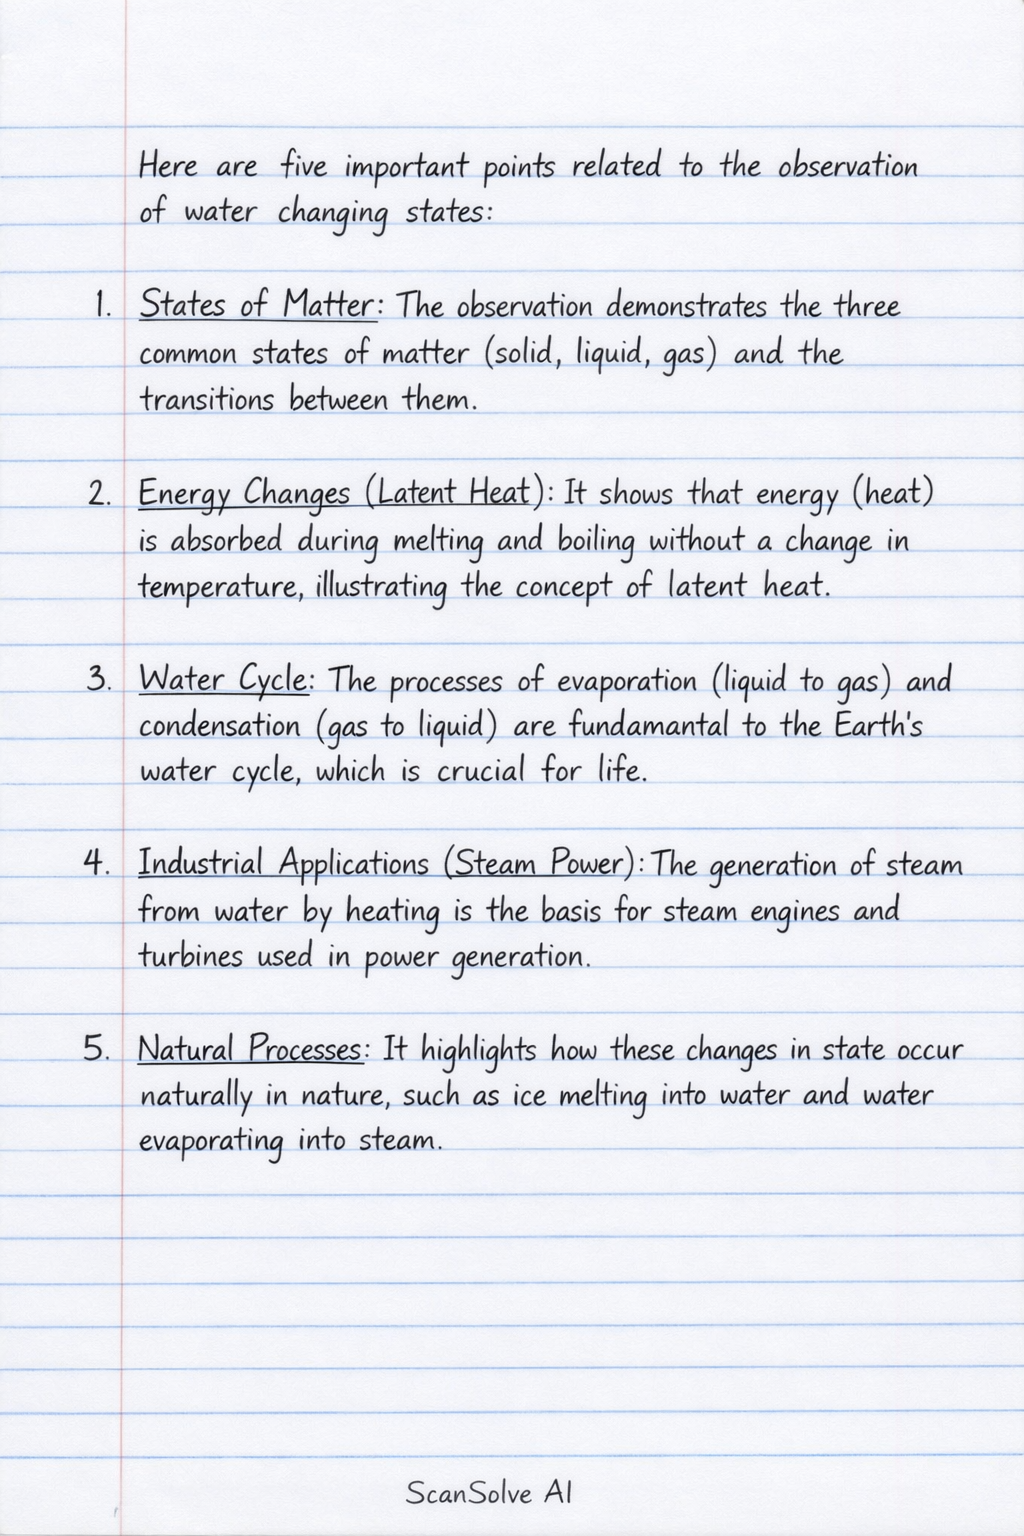 Here are five important points related to the observation
of water changing states:
1. States of Matter: The observation demonstrates the three
common states of matter (solid, liquid, gas) and the
transitions between them.
2. Energy Changes (Latent Heat): It shows that energy (heat)
is absorbed during melting and boiling without a change in
temperature, illustrating the concept of latent heat.
3. Water Cycle: The processes of evaporation (liquid to gas) and
condensation (gas to liquid) are fundamantal to the Earth's
water cycle, which is crucial for life.
4. Industrial Applications (Steam Power): The generation of steam
from water by heating is the basis for steam engines and
turbines used in power generation.
5. Natural Processes: It highlights how these changes in state occur
naturally in nature, such as ice melting into water and water
evaporating into steam.
ScanSolve AI